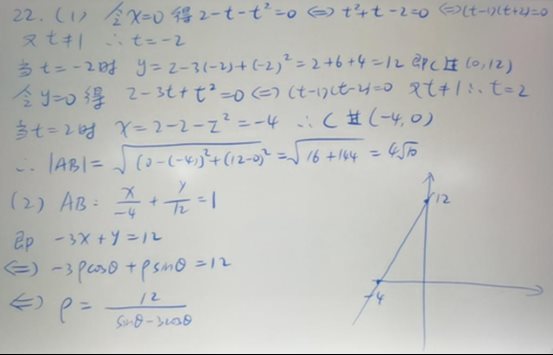 22. (1) 令x=0 得 2-t-t²=0 <=> t²+t-2=0 <=> (t-1)(t+2)=0
又t≠1 ∴t=-2
当t=-2时 y=2-3(-2)+(-2)²=2+6+4=12 即C过(0,12)
令y=0得 2-3t+t²=0 <=> (t-1)(t-2)=0 又t≠1 ∴t=2
当t=2时 x=2-2-2²=-4 ∴C过(-4,0)
∴|AB|=√(0-(-4))²+(12-0)²=√16+144=4√10
(2) AB: x/-4 + y/12 = 1
即 -3x+y=12
<=> -3ρcosθ+ρsinθ=12
<=> ρ=12/sinθ-3cosθ
12
-4